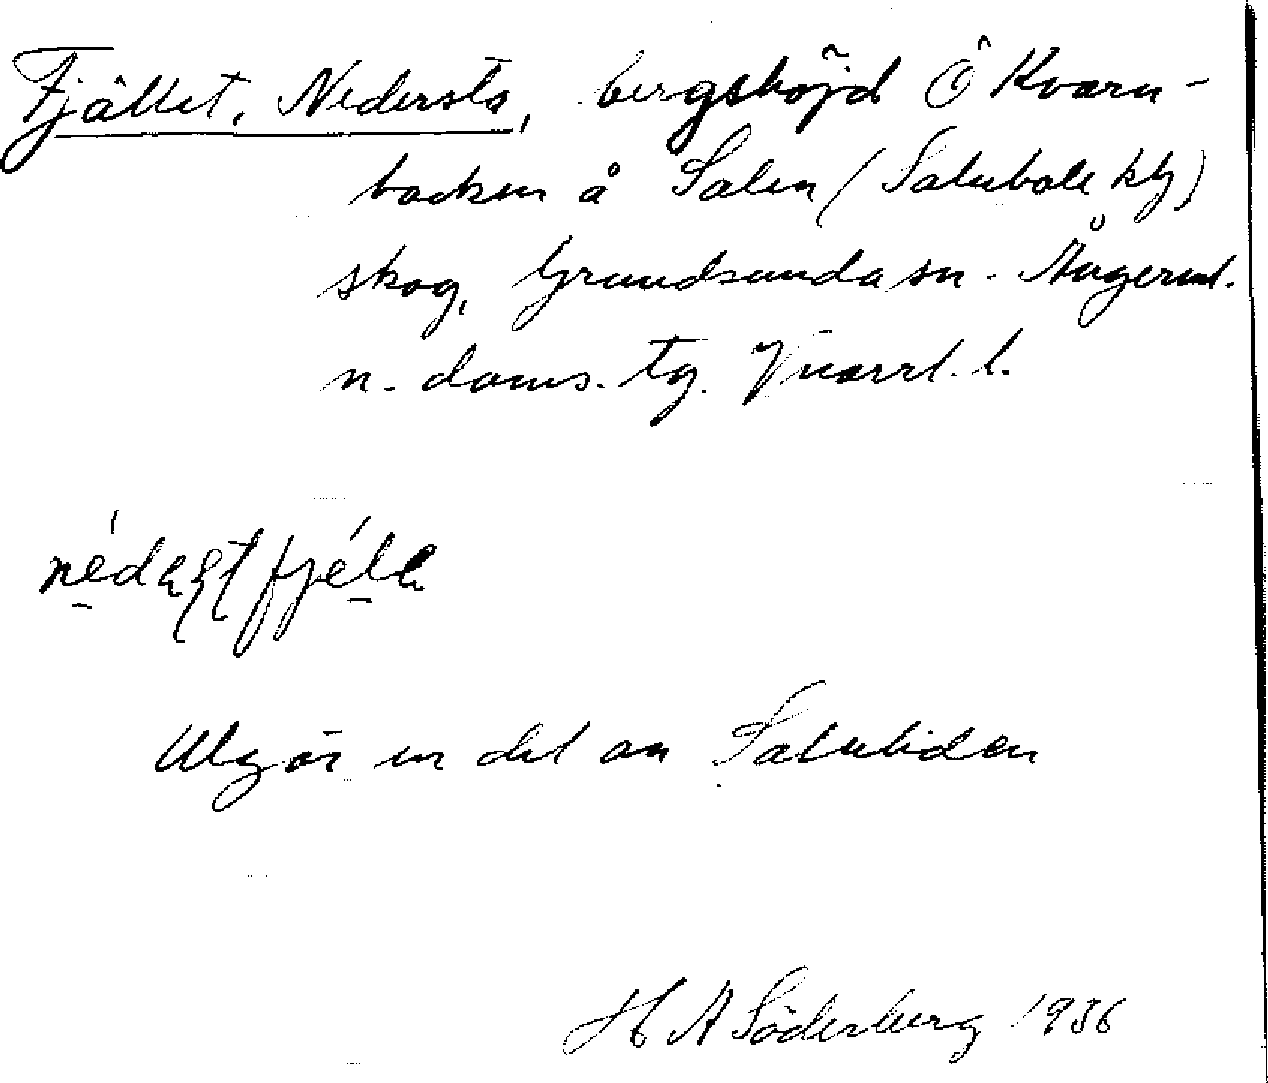 Fjället, Nedersta, bergshöjd Ö Kvarn-
backen å Salen (Salubole kly)
skog, Grundsunda sn. Ångerml.
n. doms. tg. Vnorrl. l.
Utgör en del av Saluliden
H A Söderberg 1936